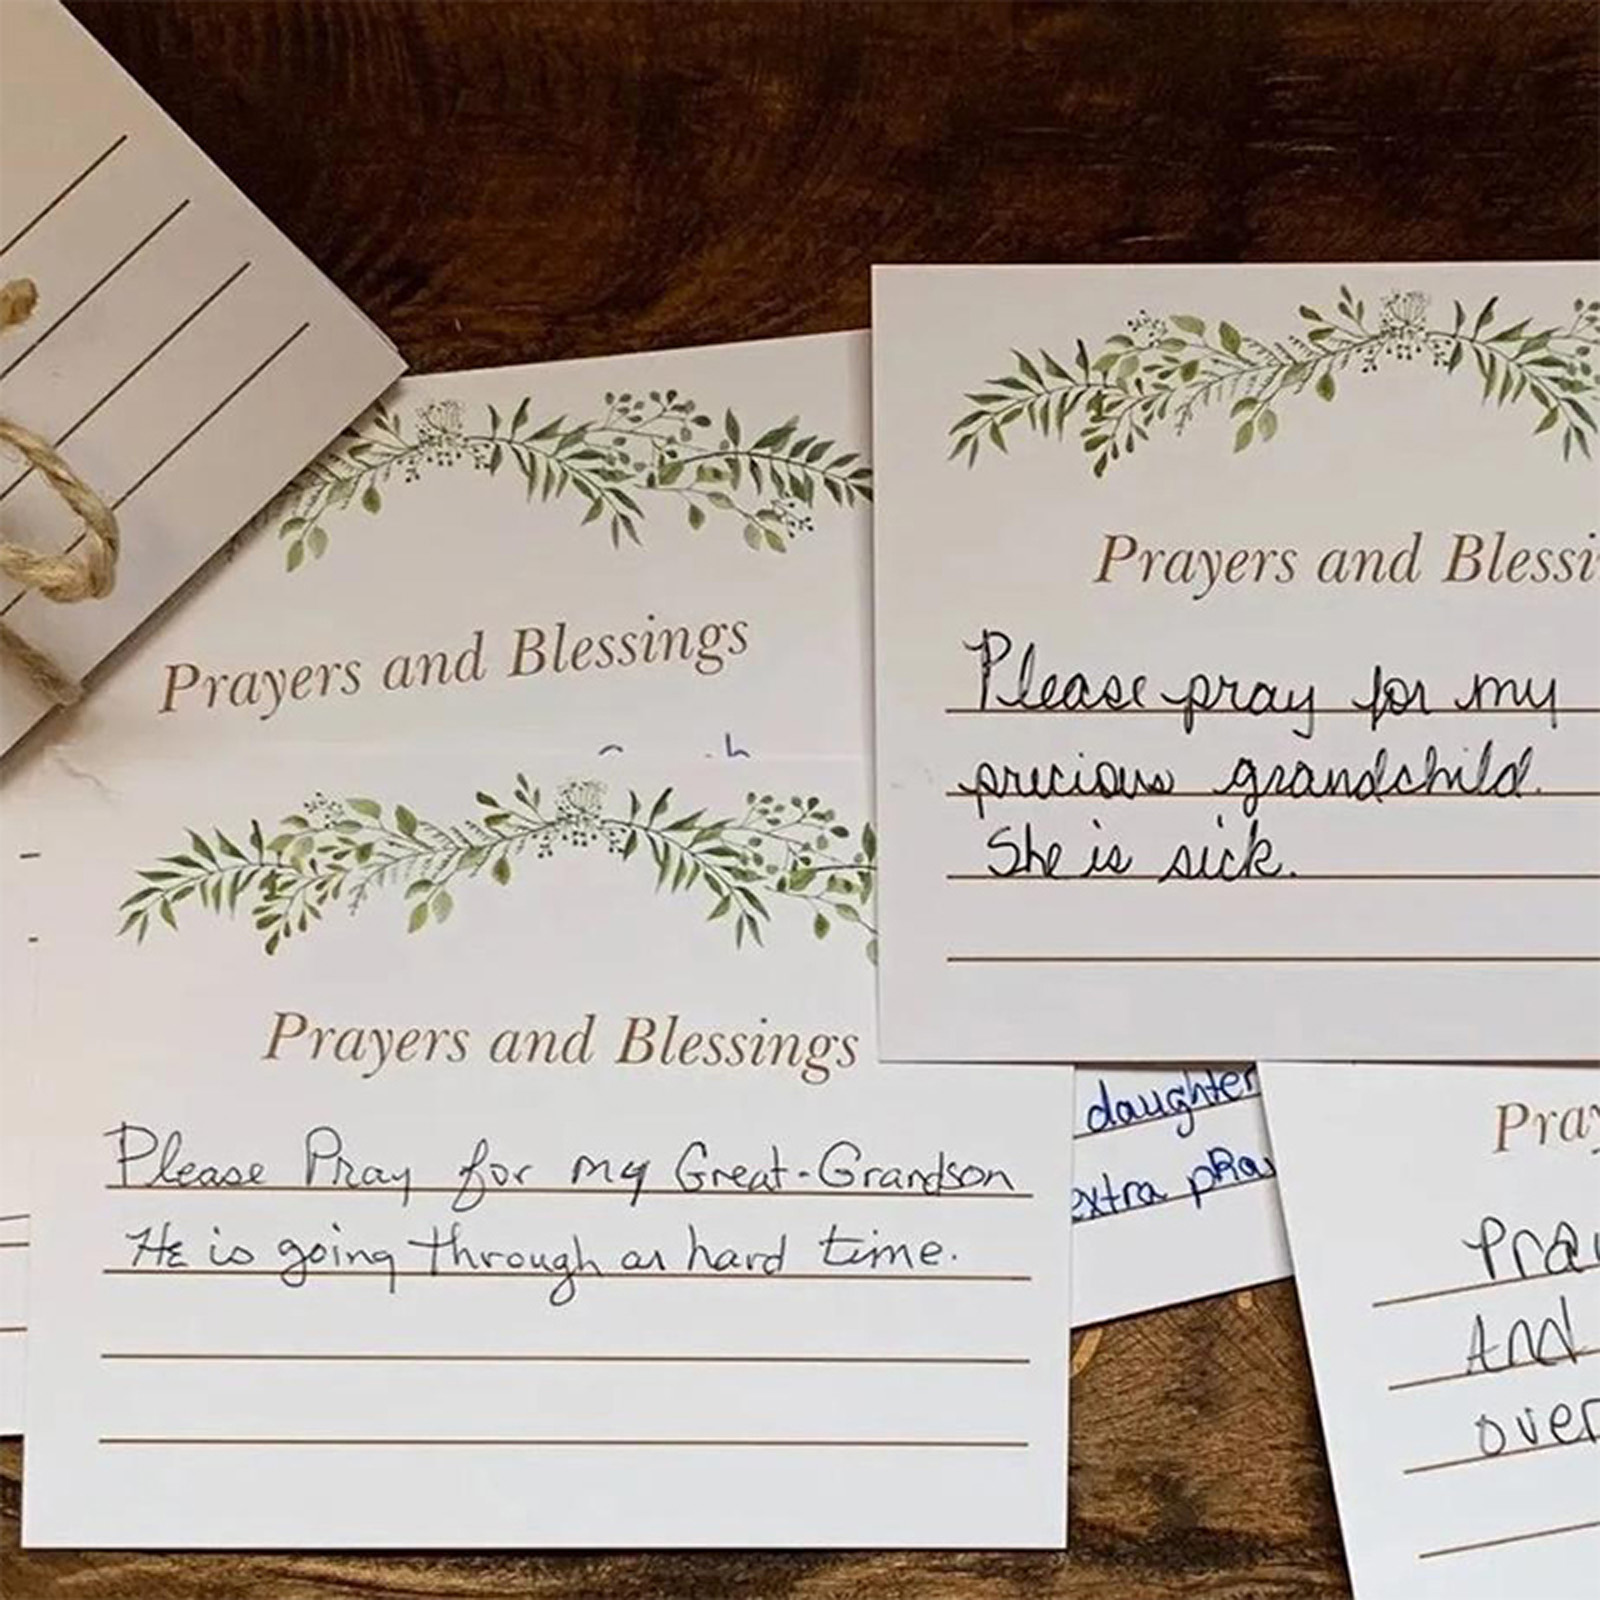 Prayers and Blessings
Prayers and
Please pray for my
precious grandchild.
She is sick.
Prayers and Blessings
Please Pray for my Great-Grandson
HE is going through a hard time.
daughter
extra
And
over